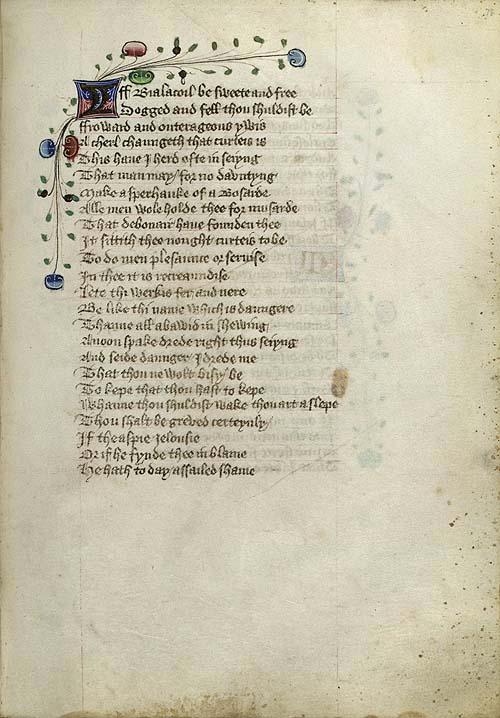 Iff Bialacoil be sweete and free
Dogged and fell thou shuldist be
ffroward and outerageous ywis
A cherl chaungeth that curteis is
This haue I herd ofte in seiyng
That man may / for no dauntyng
Make a sperhauke of a Bosarde
Alle men wole holde thee for musarde
That debonair haue founden thee
It sittith thee nought curteis to be
To do men plesaunce or seruise
In thee it is recreaundise
Lete thi werkis fer and nere
Be like thi name which is daungere
Thanne all abawid in shewing
Anoon spake drede right thus seiyng
And seide daunger I drede me
That thou ne wolt bisy be
To kepe that thou hast to kepe
Whanne thou shuldist wake thou art a slepe
Thou shalt be greved certeynly
If the aspie Jelousie
Or if he fynde thee in blame
He hath to day assailed shame